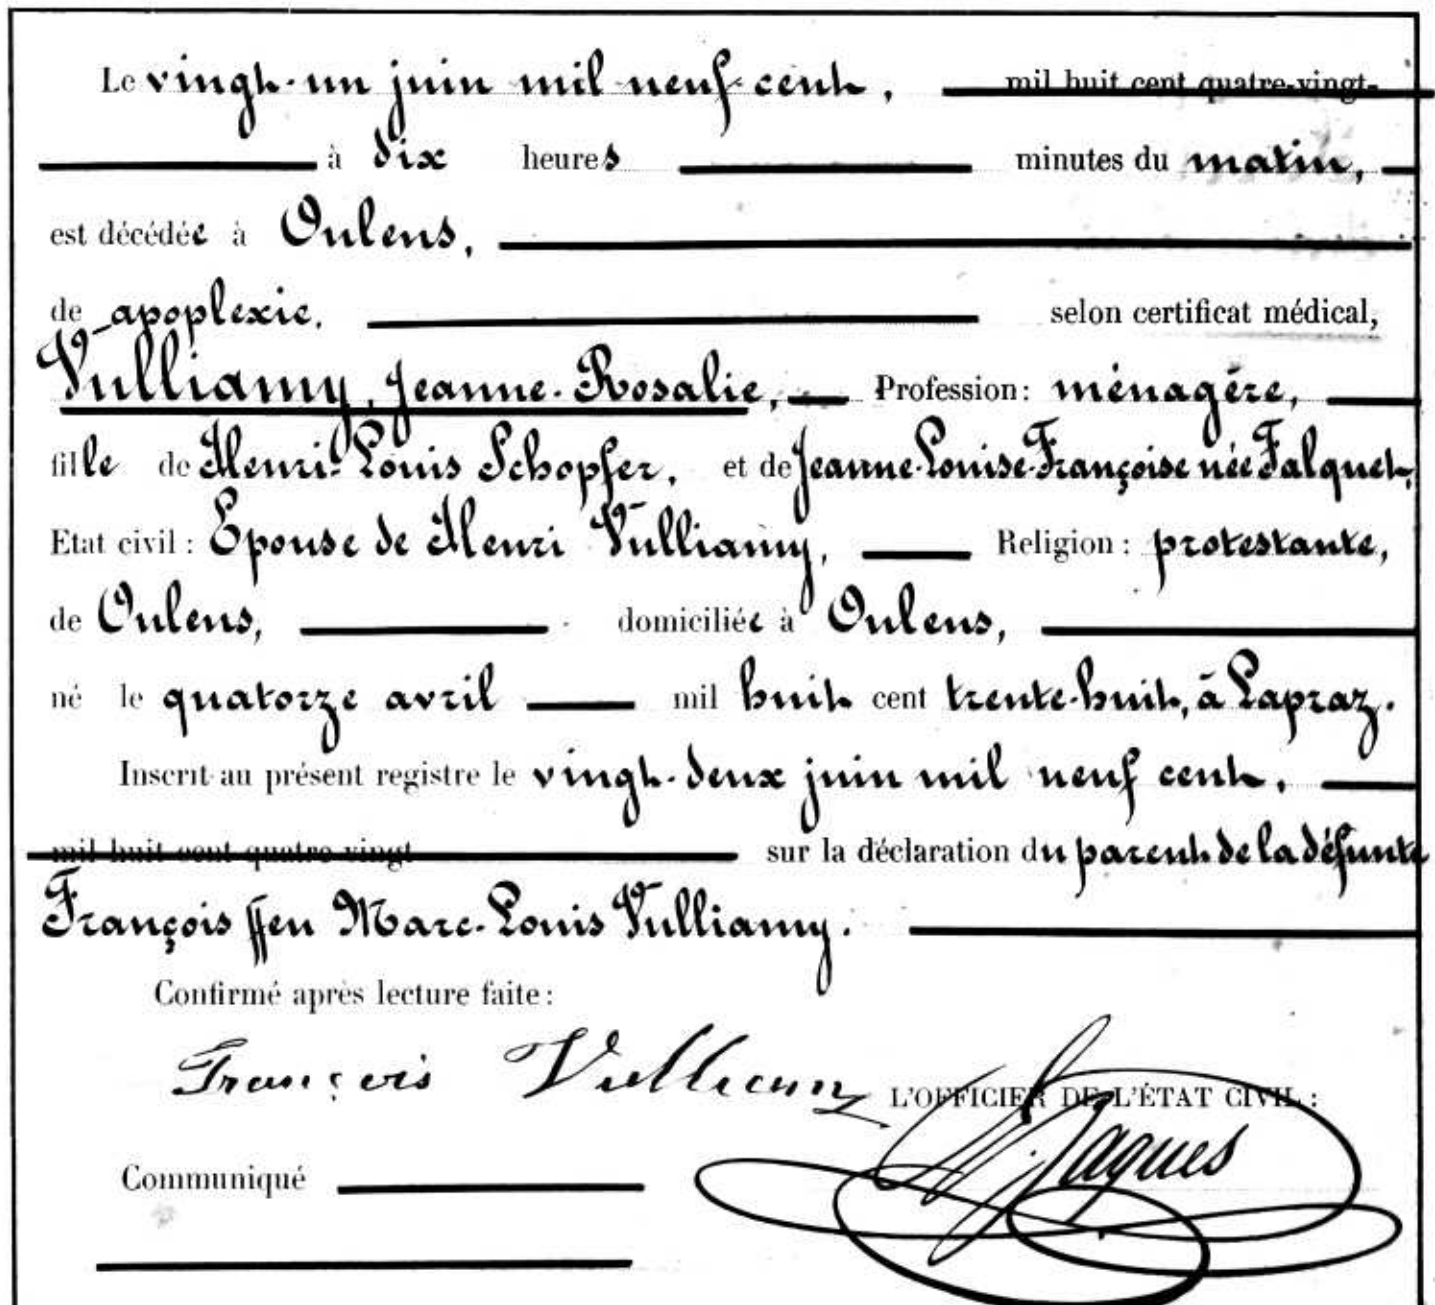 Le vingt-un juin mil neuf cent, mil huit cent quatre-vingt-
à dix heures minutes du matin,
est décédée à Oulens,
de apoplexie, selon certificat médical,
Vulliamy, Jeanne-Rosalie, Profession: ménagère,
fille de Henri-Louis Schopfer, et de Jeanne-Louise-Françoise née Falquet,
Etat civil: Epouse de Henri Vulliamy, Religion: protestante,
de Oulens, domiciliée à Oulens,
né le quatorze avril mil huit cent trente-huit, à Lapraz.
Inscrit au présent registre le vingt-deux juin mil neuf cent,
mil huit cent quatre-vingt sur la déclaration du parent de la défunte
François ffeu Marc-Louis Vulliamy.
Confirmé après lecture faite:
François Vulliamy
L'OFFICIER DE L'ÉTAT CIVIL:
Jaques
Communiqué